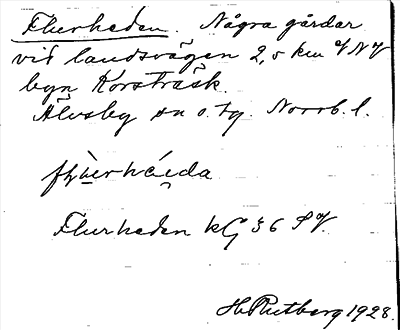 Flurheden. Några gårdar
vid landsvägen 2,5 km
byn Korsträsk.
Älvsby sn o. tg. Norrb. l.
Flurheden kG 36
H. Rutberg 1928.